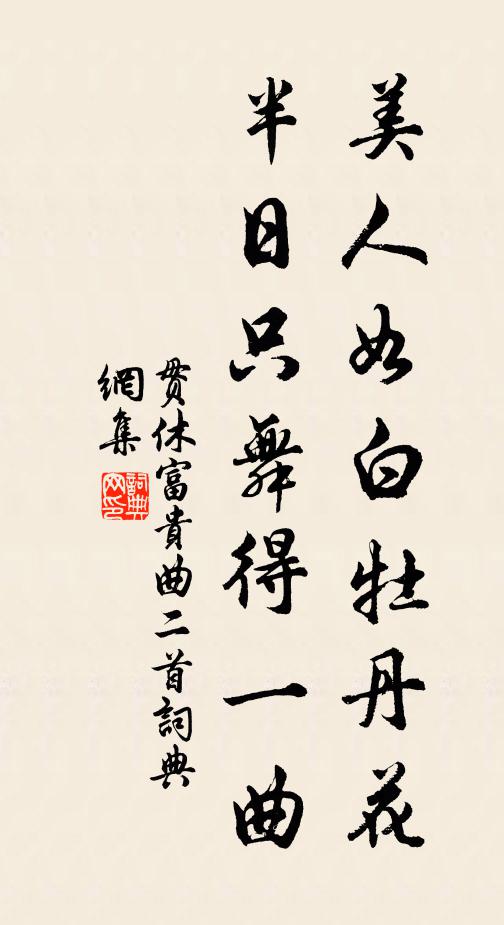 美人如白牡丹花
半日只舞得一曲
貫休富貴曲二首詞典
網集
詞典
网印